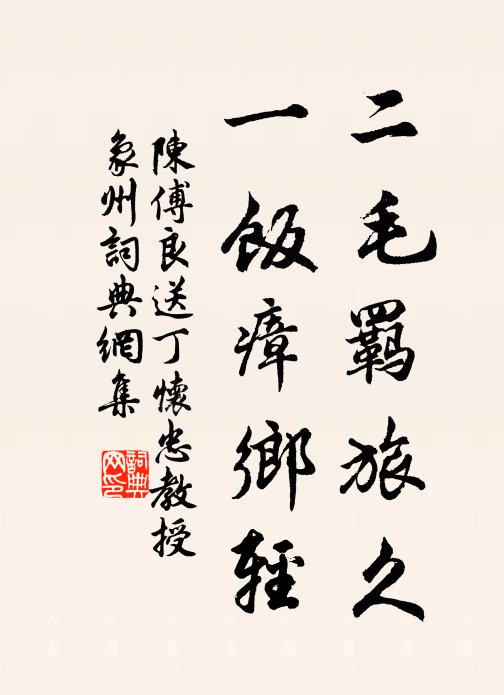 二毛羈旅久
一飯瘴鄉輕
陳傅良送丁懷忠教授
象州詞典網集
詞典
网印